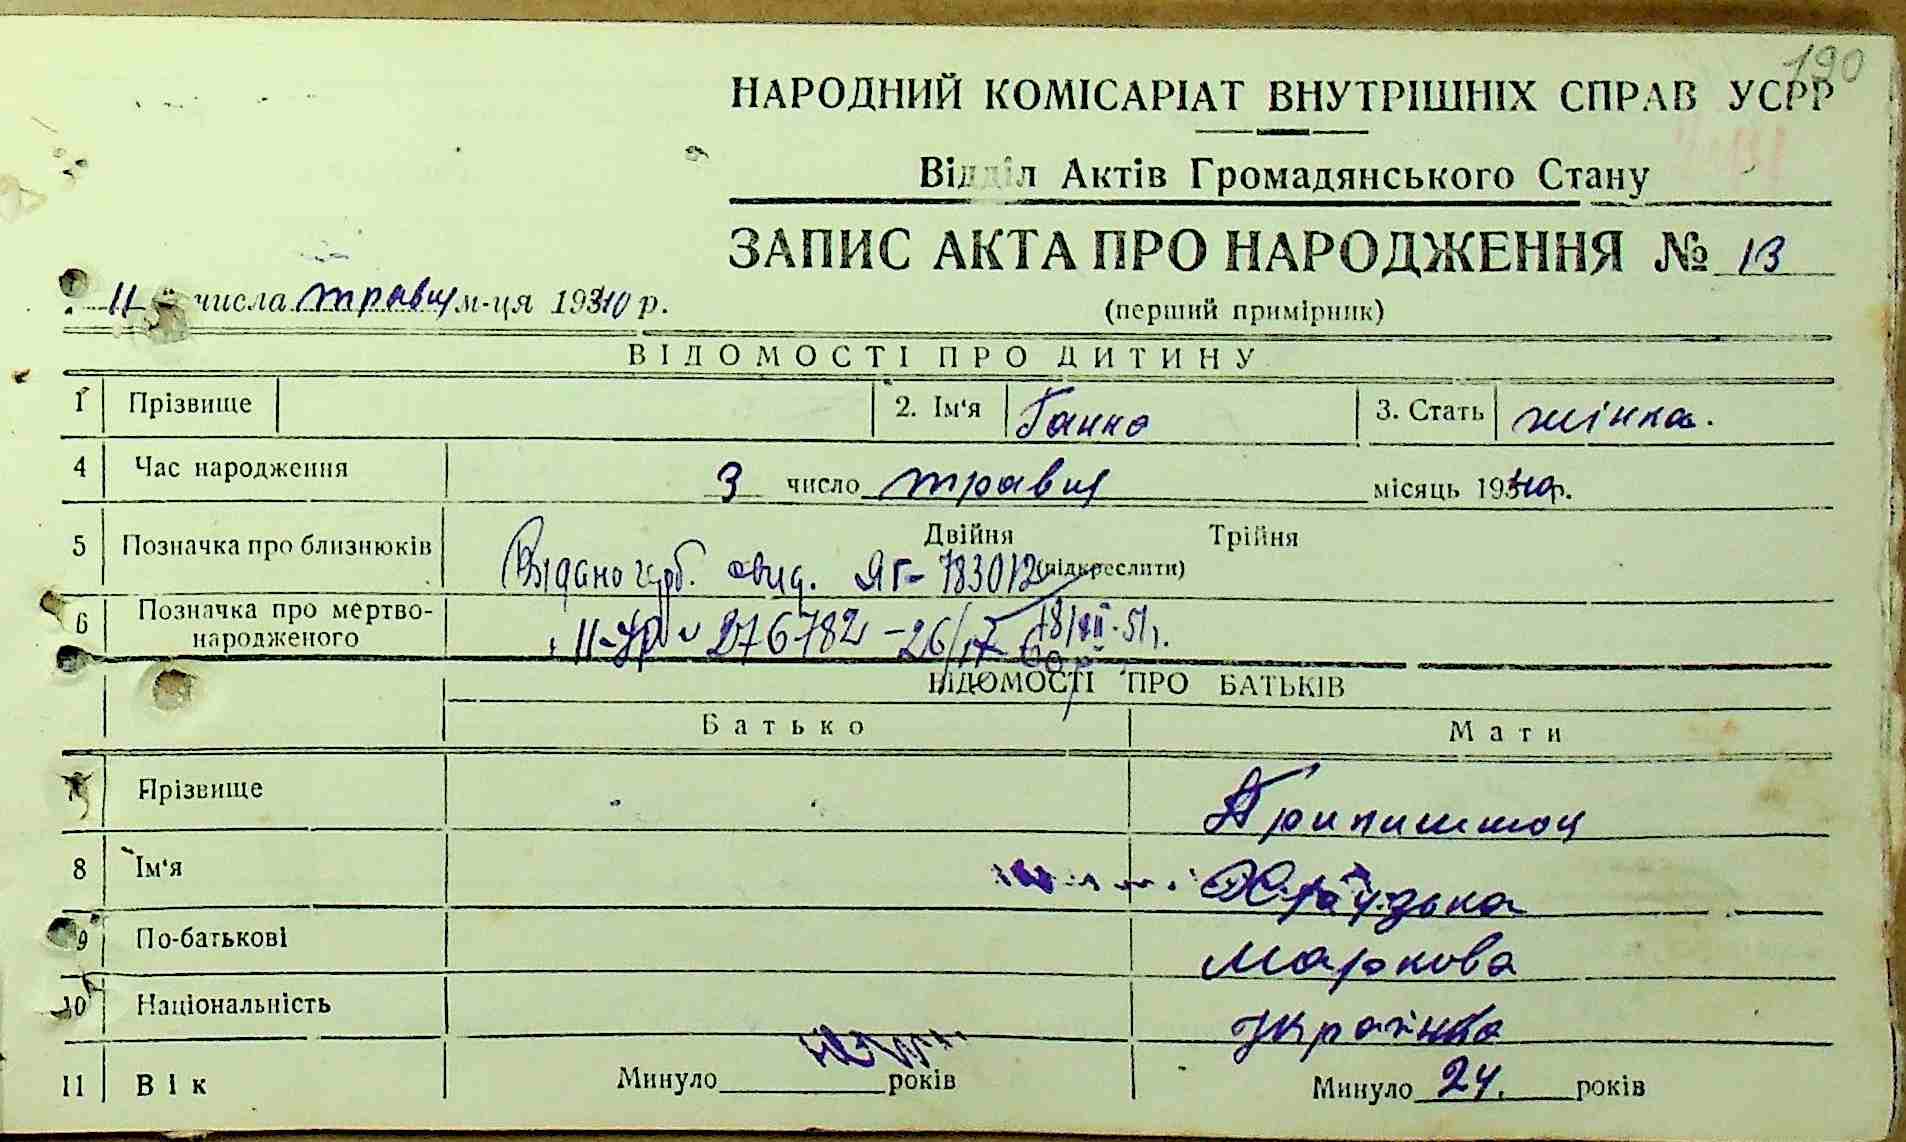 190
НАРОДНИЙ КОМІСАРІАТ ВНУТРІШНІХ СПРАВ УСРР
Відділ Актів Громадянського Стану
ЗАПИС АКТА ПРО НАРОДЖЕННЯ № 13
11 числа травня м-ця 1940 р.
(перший примірник)
ВІДОМОСТІ ПРО ДИТИНУ
1 Прізвище 2. Ім'я Ганна 3. Стать жінка.
4 Час народження 3 число травня місяць 1940р.
5 Позначка про близнюків Двійня Трійня
(підкреслити)
Видано свид. ЯГ-783012
6 Позначка про мертво-
народженого
II-УР № 276782 - 26/
18/VII-51р.
ВІДОМОСТІ ПРО БАТЬКІВ
Батько Мати
7 Прізвище
8 Ім'я
9 По-батькові Маркова
10 Національність Українка
11 Вік Минуло років Минуло 24. років